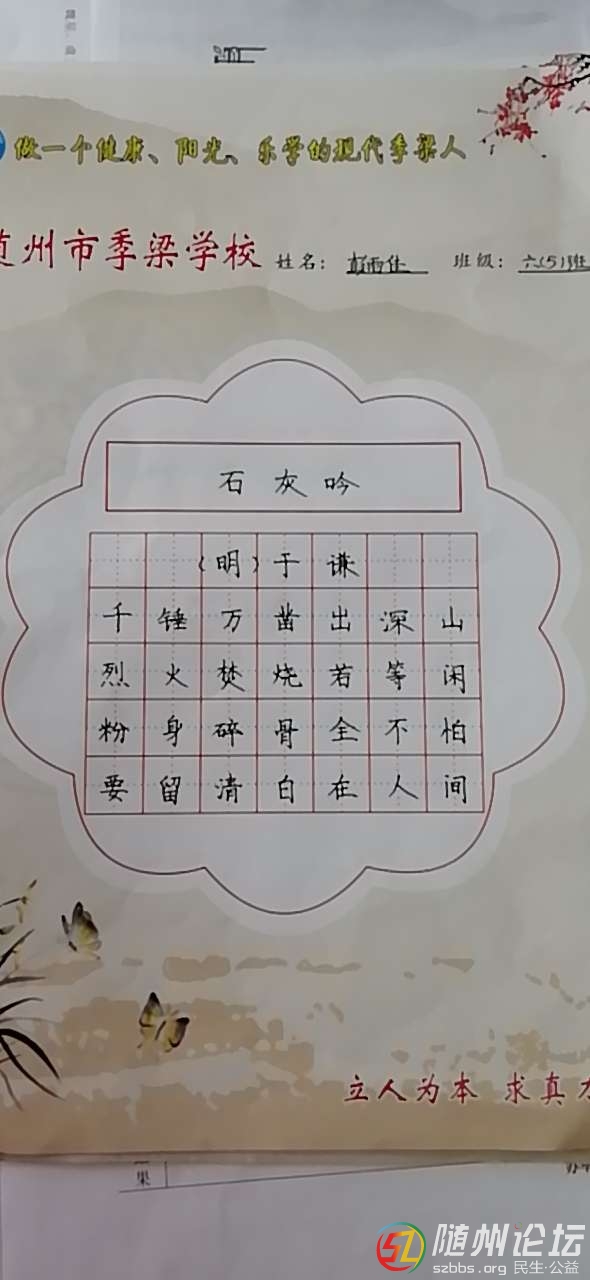 做一个健康、阳光、乐学的现代季梁人
随州市季梁学校 姓名: 雨佳 班级: 六(5)班
石灰吟
(明)于谦
千锤万凿出深山
烈火焚烧若等闲
粉身碎骨全不怕
要留清白在人间
立人为本 求真
果
随州论坛
szbbs.org 民生·公益